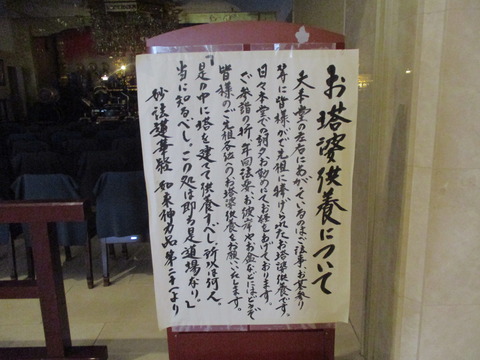 お塔婆供養について
大本堂の左右にあがっているのはご法事、お墓参り
等に皆様がご先祖に捧げられたお塔婆供養です。
日々本堂での朝夕お勤めにてお経をあげております。
ご参詣の折、年回法要、お彼岸やお盆などにはどうぞ
皆様のご先祖各位へのお塔婆供養をお願いいたします。
「是の中に塔を建てて供養すべし。所以は何ん。
当に知るべし。この処は即ち是道場なり。」
妙法蓮華経 如来神力品第二十一より